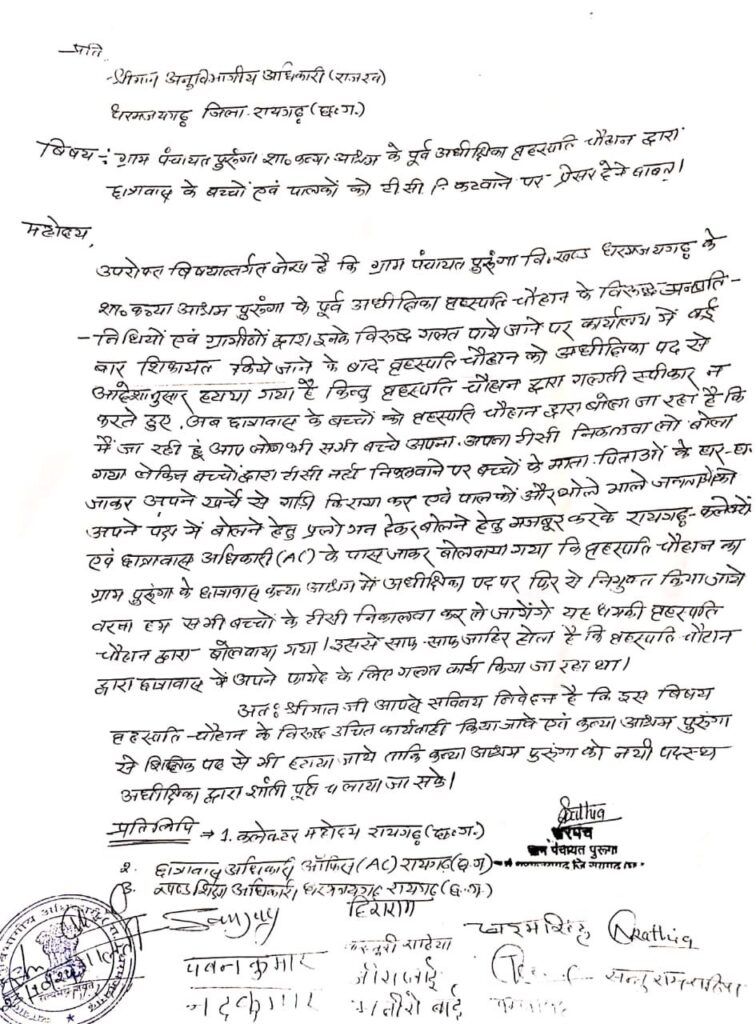 प्रति,
श्रीमान अनुविभागीय अधिकारी (राजस्व)
धरमजयगढ़ जिला-रायगढ़ (छ.ग.)
विषय:- ग्राम पंचायत पुरूंगा शा० कन्या आश्रम के पूर्व अधीक्षिका बृहस्पति चौहान द्वारा
छात्रावास के बच्चों एवं पालकों को टीसी कटवाने पर प्रेसर देने बाबत्।
महोदय,
उपरोक्त विषयान्तर्गत लेख है कि ग्राम पंचायत पुरूंगा वि.खण्ड धरमजयगढ़ के
शा० कन्या आश्रम पुरूंगा के पूर्व अधीक्षिका बृहस्पति चौहान के विरूद्ध जनप्रति-
-निधियों एवं ग्रामीणों द्वारा इनके विरुद्ध गलत पाये जाने पर कार्यालय में कई
बार शिकायत किये जाने के बाद बृहस्पति चौहान को अधीक्षिका पद से
आदेशानुसार हटाया गया है किन्तु बृहस्पति चौहान द्वारा गलती स्वीकार न
करते हुए, अब छात्रावास के बच्चों को बृहस्पति चौहान द्वारा बोला जा रहा है कि
मैं जा रही हूं आप लोग भी सभी बच्चे अपना-अपना टीसी निकलवा लो बोला
गया लेकिन बच्चों द्वारा टीसी नहीं निकलवाने पर बच्चों के माता-पिताओं के घर-घर
जाकर अपने खर्चे से गाड़ी किराया कर एवं पालकों और भोले भाले जनता को
अपने पक्ष में बोलने हेतु प्रलोभन देकर बोलने हेतु मजबूर करके रायगढ़-कलेक्टर
एवं छात्रावास अधिकारी (AC) के पास जाकर बोलवाया गया कि बृहस्पति चौहान को
ग्राम पुरूंगा के छात्रावास कन्या आश्रम में अधीक्षिका पद पर फिर से नियुक्त किया जाये
वरना हम सभी बच्चों के टीसी निकालवा कर ले जायेंगे यह धमकी बृहस्पति
चौहान द्वारा बोलवाया गया। इससे साफ-साफ जाहिर होता है कि बृहस्पति चौहान
द्वारा छात्रावास में अपने फायदे के लिए गलत कार्य किया जा रहा था।
अतः श्रीमान जी आपसे सविनय निवेदन है कि इस विषय
बृहस्पति-चौहान के विरुद्ध उचित कार्यवाही किया जावे एवं कन्या आश्रम पुरूंगा
से शिक्षिक पद से भी हटाया जाये ताकि कन्या आश्रम पुरूंगा को नयी पदस्थ
अधीक्षिका द्वारा शांती पूर्वा चलाया जा सके।
प्रतिलिपि → 1. कलेक्टर महोदय रायगढ़ (छ.ग.)
सरपंच
ग्राम पंचायत पुरूंगा
2. छात्रावास अधिकारी ऑफिस (AC) रायगढ़ (छ.ग)
3. खण्ड शिक्षा अधिकारी धरमजयगढ़ रायगढ़ (छ.ग.)
Sanjay हिराराम Rathia
पवन कुमार
नंदकुमार